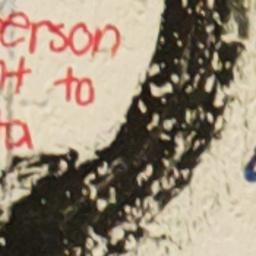 erson
t to
ta